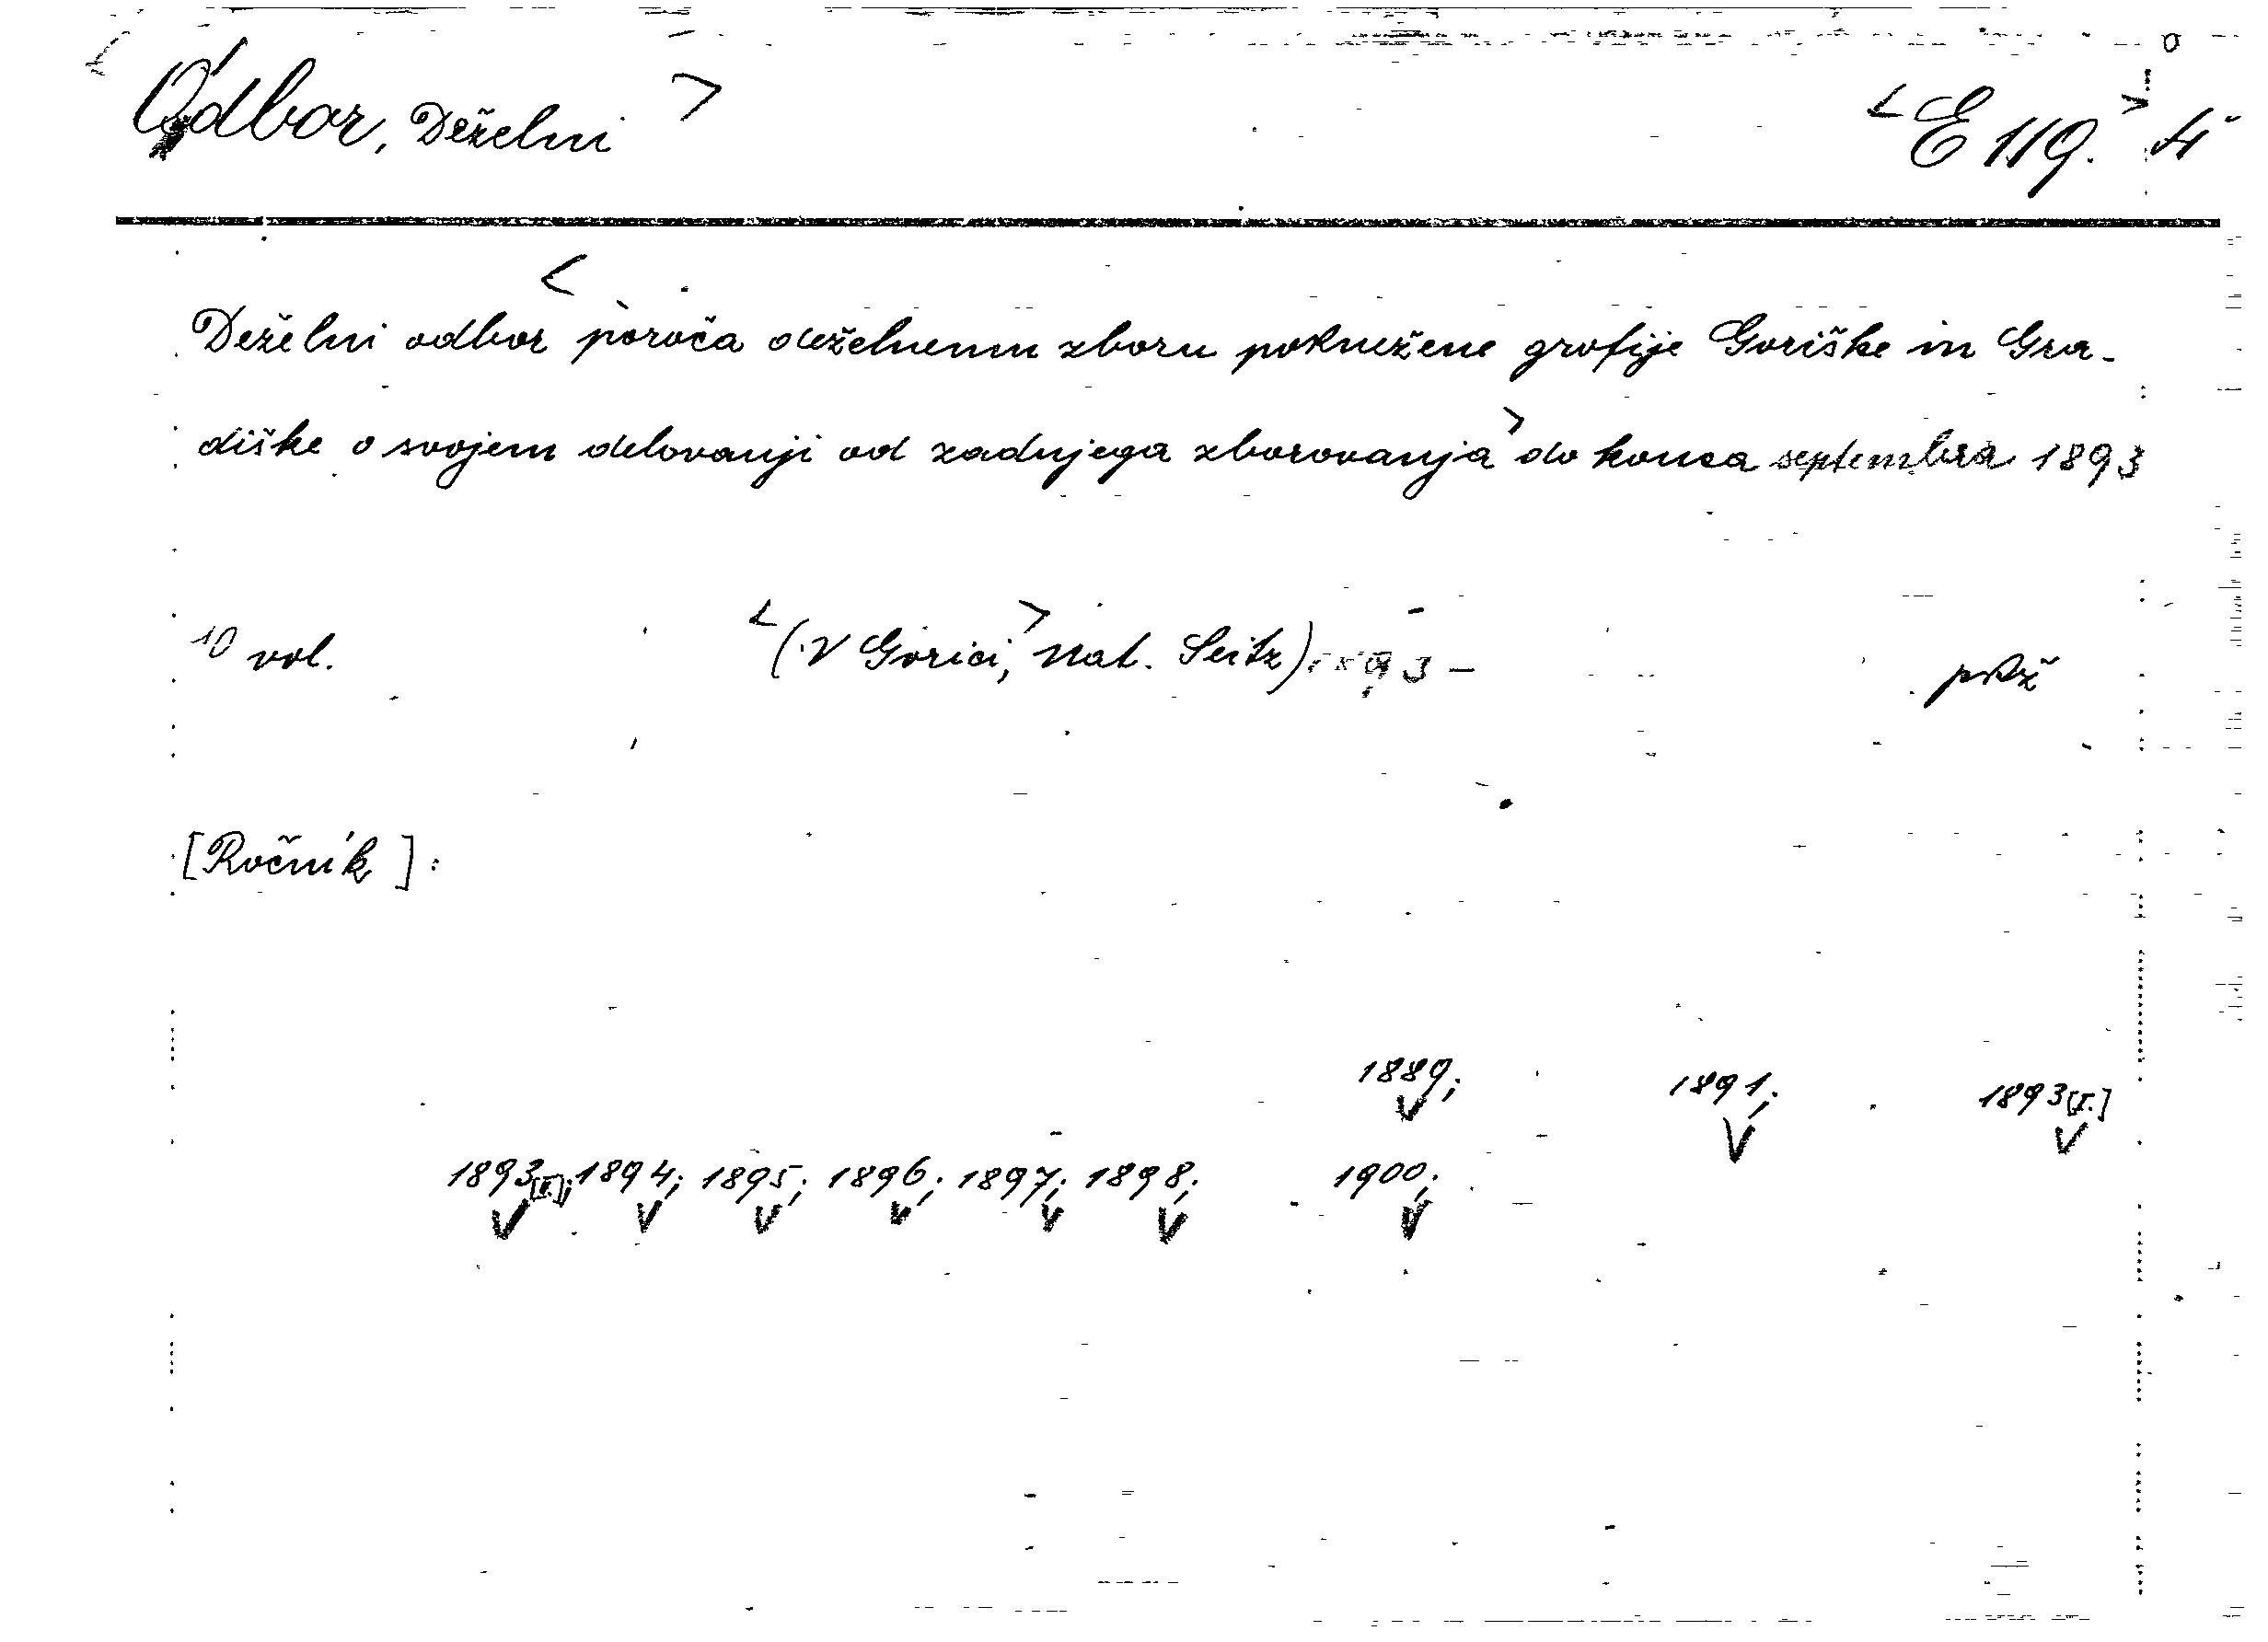 Odbor, Deželni > <E 119.> 4°
< Deželni odbor poroča deželnemu zboru poknežene grofije Goriške in Gra-
diške o svojem delovanji od zadnjega zborovanja> do konca septembra 1893
10 vol. <(V Gorici,> Nat. Seitz), 1893 –
[Ročník]:
1889; 1891; 1893[I.]
1893[II.]; 1894; 1895; 1896; 1897; 1898; 1900;